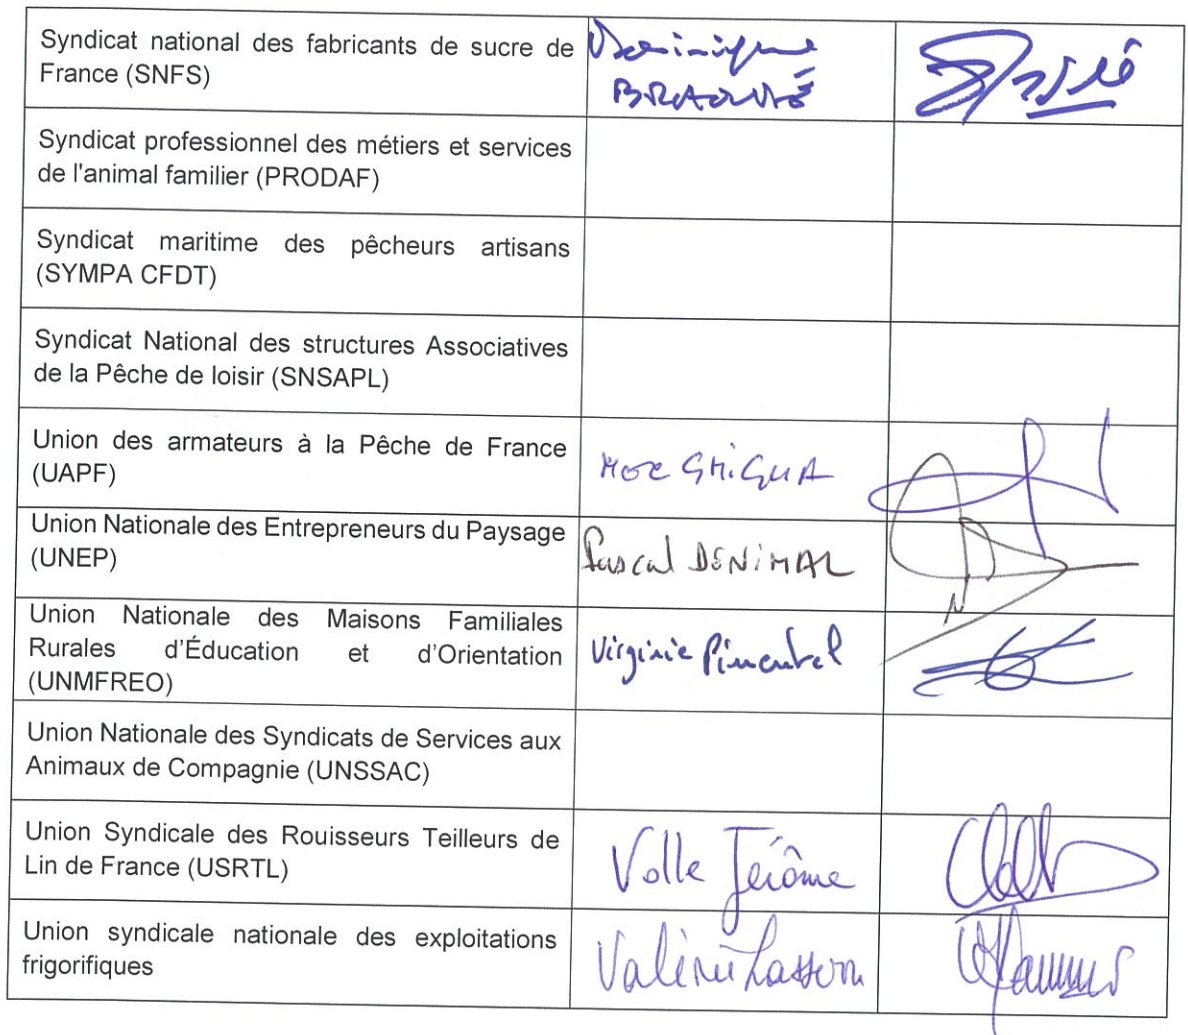 Syndicat national des fabricants de sucre de
France (SNFS)
Dominique
Syndicat professionnel des métiers et services
de l'animal familier (PRODAF)
Syndicat maritime des pêcheurs artisans
(SYMPA CFDT)
Syndicat National des structures Associatives
de la Pêche de loisir (SNSAPL)
Union des armateurs à la Pêche de France
(UAPF)
GHiGLIA
Union Nationale des Entrepreneurs du Paysage
(UNEP)
Pascal DENiMAL
Union Nationale des Maisons Familiales
Rurales d'Éducation et d'Orientation
(UNMFREO)
Virginie Pimentel
Union Nationale des Syndicats de Services aux
Animaux de Compagnie (UNSSAC)
Union Syndicale des Rouisseurs Teilleurs de
Lin de France (USRTL)
Volle Jérôme
Union syndicale nationale des exploitations
frigorifiques
Valérie